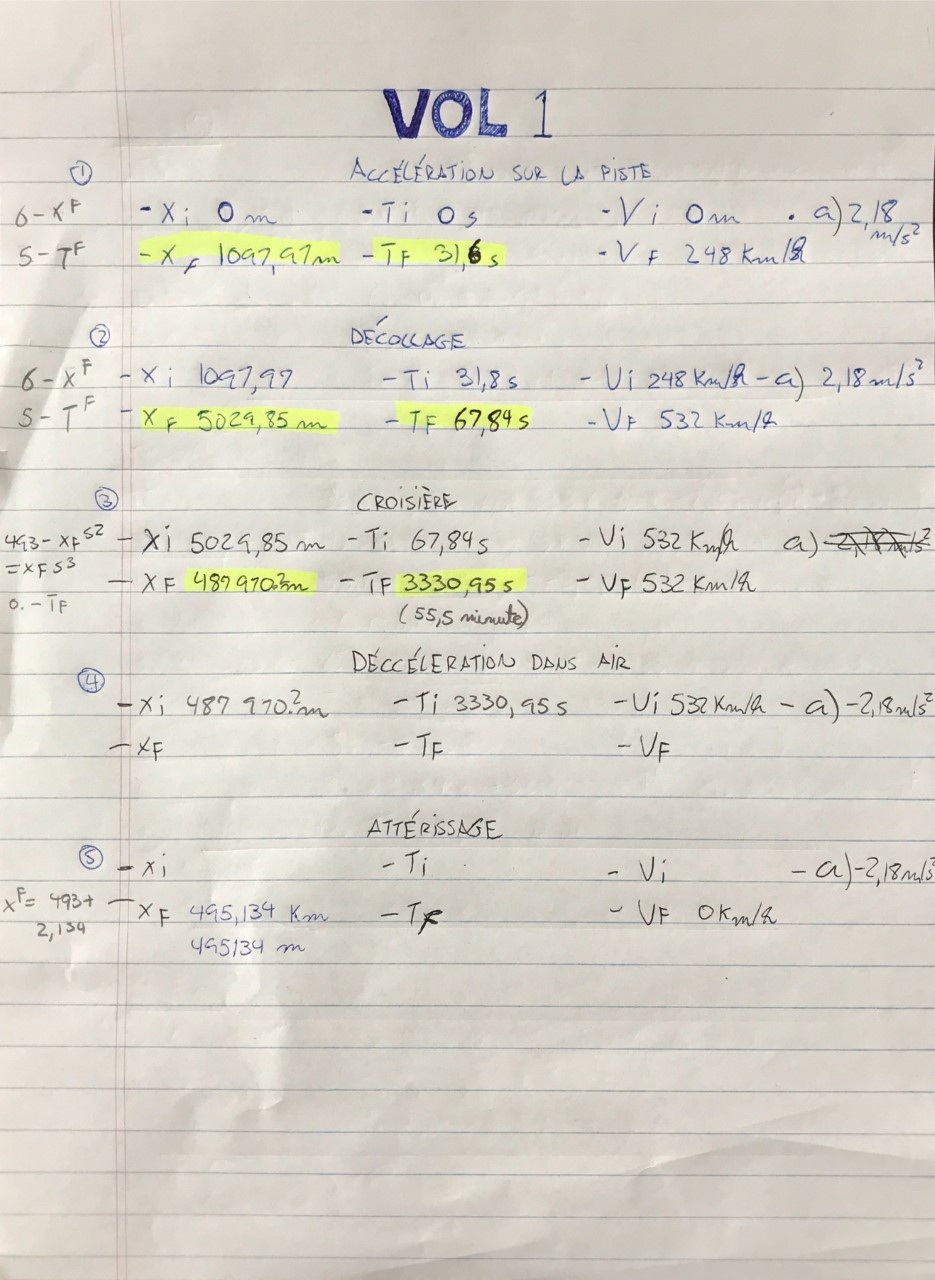 VOL 1
① ACCÉLÉRATION SUR LA PISTE
6 - XF - Xi 0 m - Ti 0 s - Vi 0m . a) 2,18 m/s²
5 - TF - XF 1097,97 m - TF 31,6 s - VF 248 Km/h
② DÉCOLLAGE
6 - XF - Xi 1097,97 - Ti 31,8 s - Vi 248 Km/h - a) 2,18 m/s²
5 - TF - XF 5029,85 m - TF 67,84 s - VF 532 Km/h
③ CROISIÈRE
493 - XF S2 - Xi 5029,85 m - Ti 67,84 s - Vi 532 Km/h a) 2,18 m/s²
= XF S3 - XF 487970.?m - TF 3330,95 s - VF 532 Km/h
0. - TF (55,5 minute)
④ DÉCCÉLERATION DANS AIR
- Xi 487 970.?m - Ti 3330,95 s - Vi 532 Km/h - a) -2,18 m/s²
- XF - TF - VF
ATTÉRISSAGE
⑤ - Xi - Ti - Vi - a) -2,18 m/s²
XF = 493 + - XF 495,134 Km - TF - VF 0 Km/h
2,134 495134 m